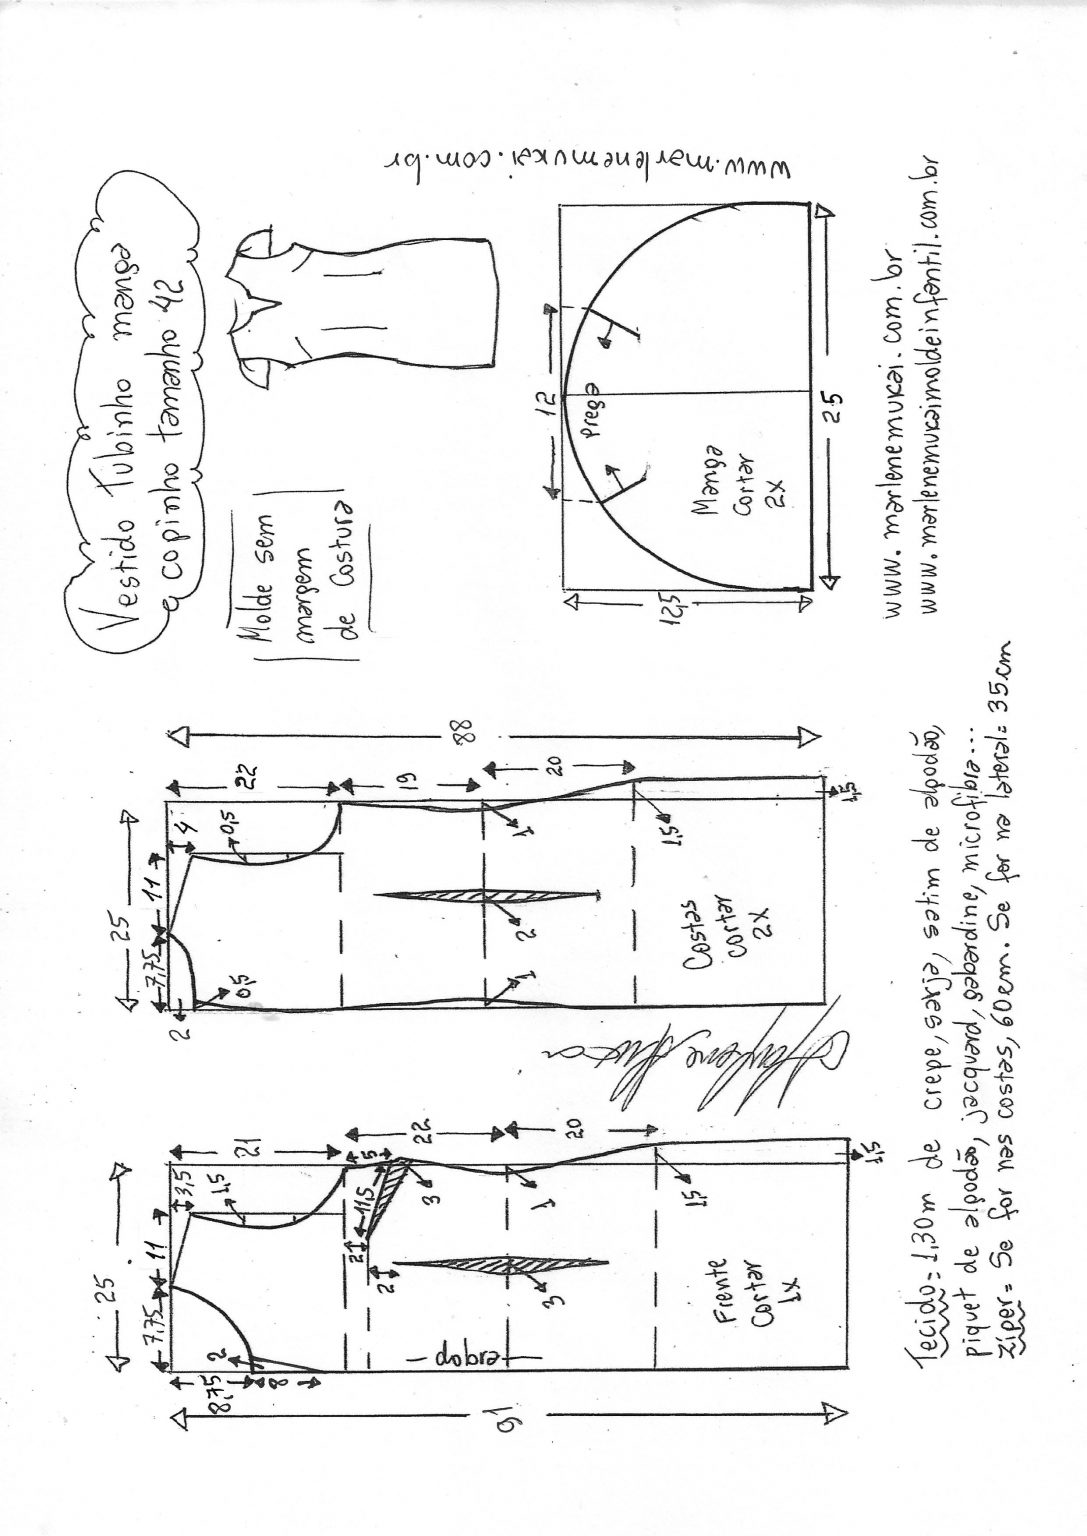 Vestido Tubinho manga
copinho tamanho 42
Molde sem
margem
de Costura
www.marlenemukai.com.br
12
Prega
Manga
Cortar
2x
12,5
25
www.marlenemukai.com.br
www.marlenemukaimoldeinfantil.com.br
25
7,75
11
4
2
0,5
0,5
22
19
20
88
1
1
2
1,5
1,5
Costas
Cortar
2x
25
7,75
11
3,5
1,5
21
22
20
5
11,5
3
2
2
3
1
1,5
1,5
8,75
8
2
91
dobra
Frente
Cortar
1x
Tecido= 1,30m de crepe, sarja, satim de algodão,
piquet de algodão, jacquard, gabardine, microfibra...
Zíper= Se for nas costas, 60cm. Se for na lateral= 35cm